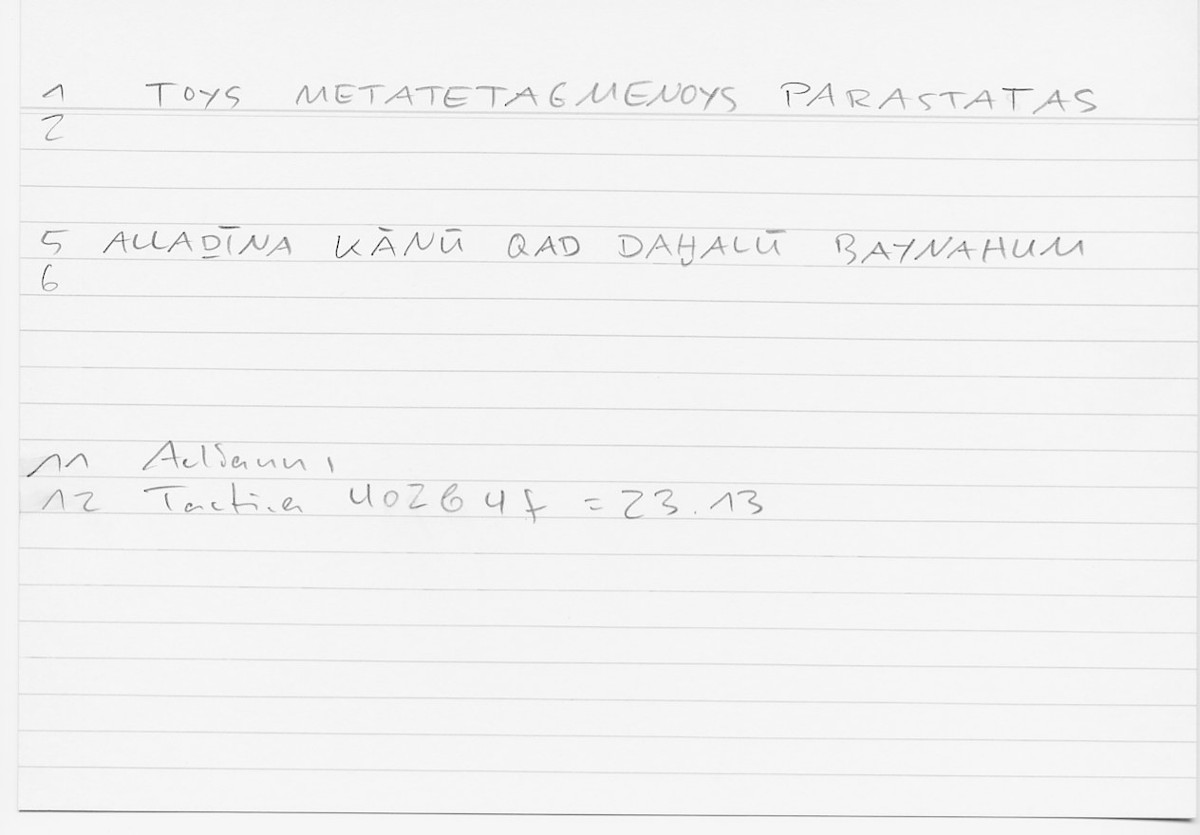 1 TOYS METATETAGMENOYS PARASTATAS
2
5 ALLAḎĪNA KĀNŪ QAD DAḪALŪ BAYNAHUM
6
11 Aelianus,
12 Tactica 40264f = 23.13